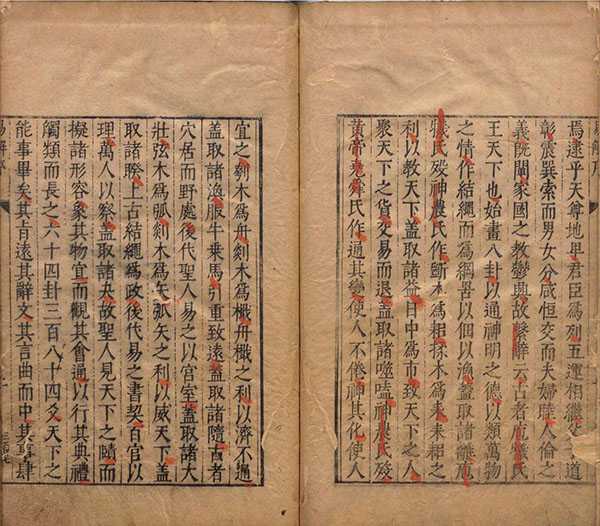 焉逮乎天尊地卑君臣爲列五運相繼父子道
彰震巽索而男女分咸恒交而夫婦睦人倫之
義既闡家國之教鬱興故繫辭云古者庖犧氏
王天下也始畫八卦以通神明之德以類萬物
之情作結繩而爲網罟以佃以漁蓋取諸離庖
犧氏殁神農氏作斲木爲耜揉木爲耒耒耜之
利以教天下蓋取諸益日中爲市致天下之人
聚天下之貨交易而退蓋取諸噬嗑神農氏殁
黃帝堯舜氏作通其變使人不倦神其化使人
宜之刳木爲舟剡木爲檝舟檝之利以濟不通
蓋取諸渙服牛乘馬引重致遠蓋取諸隨古者
穴居而野處後代聖人易之以宮室蓋取諸大
壯弦木爲弧剡木爲矢弧矢之利以威天下蓋
取諸睽上古結繩爲政後代易之書契百官以
理萬人以察蓋取諸夬故聖人見天下之賾而
擬諸形容象其物宜而觀其會通以行其典禮
觸類而長之六十四卦三百八十四爻天下之
能事畢矣其旨遠其辭文其言曲而中其事肆